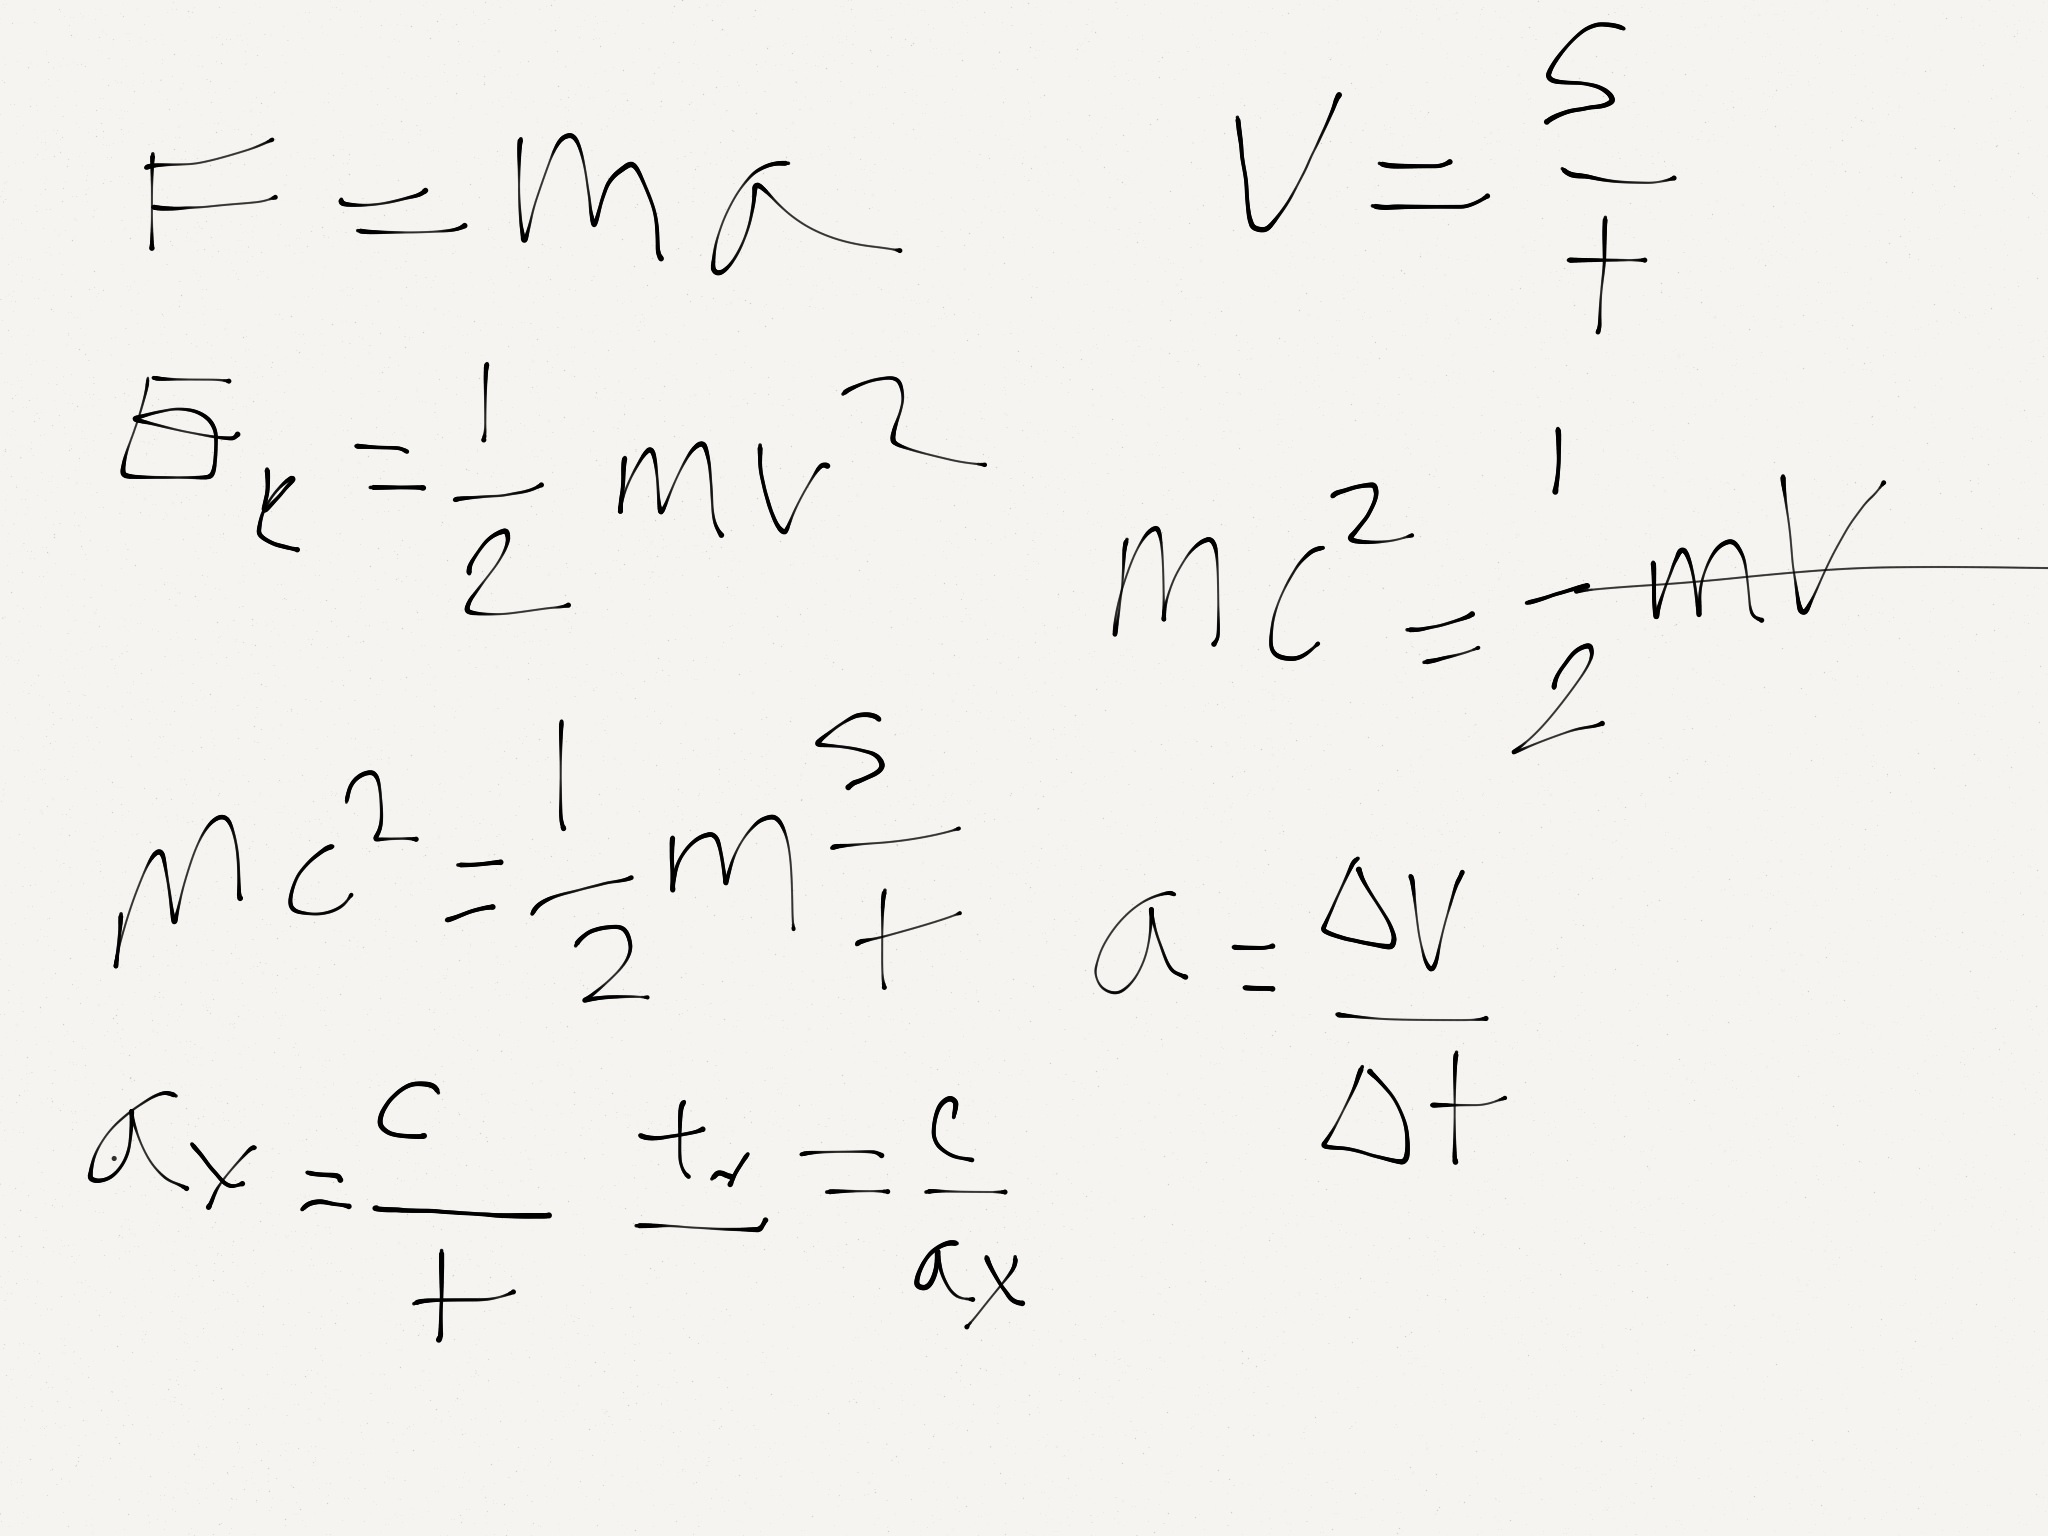 F = ma
V = s/t
E_k = 1/2 mv²
mc² = 1/2 mV
mc² = 1/2 m s/t
a = ΔV/Δt
a_x = c/t
= c/a_x